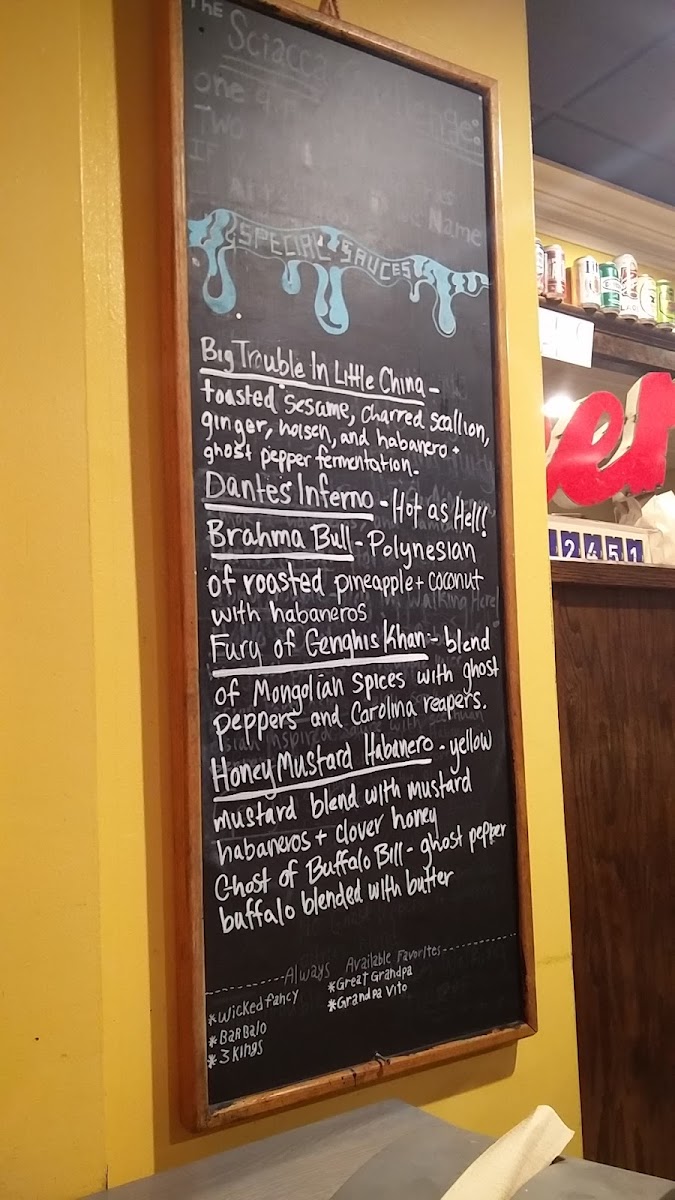 THE
Sciacca Challenge:
one
Two
IF
Name
SPECIAL SAUCES
Big Trouble In Little China -
toasted sesame, charred scallion,
ginger, hoisen, and habanero +
ghost pepper fermentation.
Dantes Inferno - Hot as Hell!
Brahma Bull - Polynesian
of roasted pineapple + coconut
with habaneros
Fury of Genghis Khan - blend
of Mongolian spices with ghost
peppers and Carolina reapers.
Honey Mustard Habanero - yellow
mustard blend with mustard
habaneros + clover honey
Ghost of Buffalo Bill - ghost pepper
buffalo blended with butter
Always Available Favorites
*Wicked fancy
*BarBalo
*3 Kings
*Great Grandpa
*Grandpa Vito
er
2451